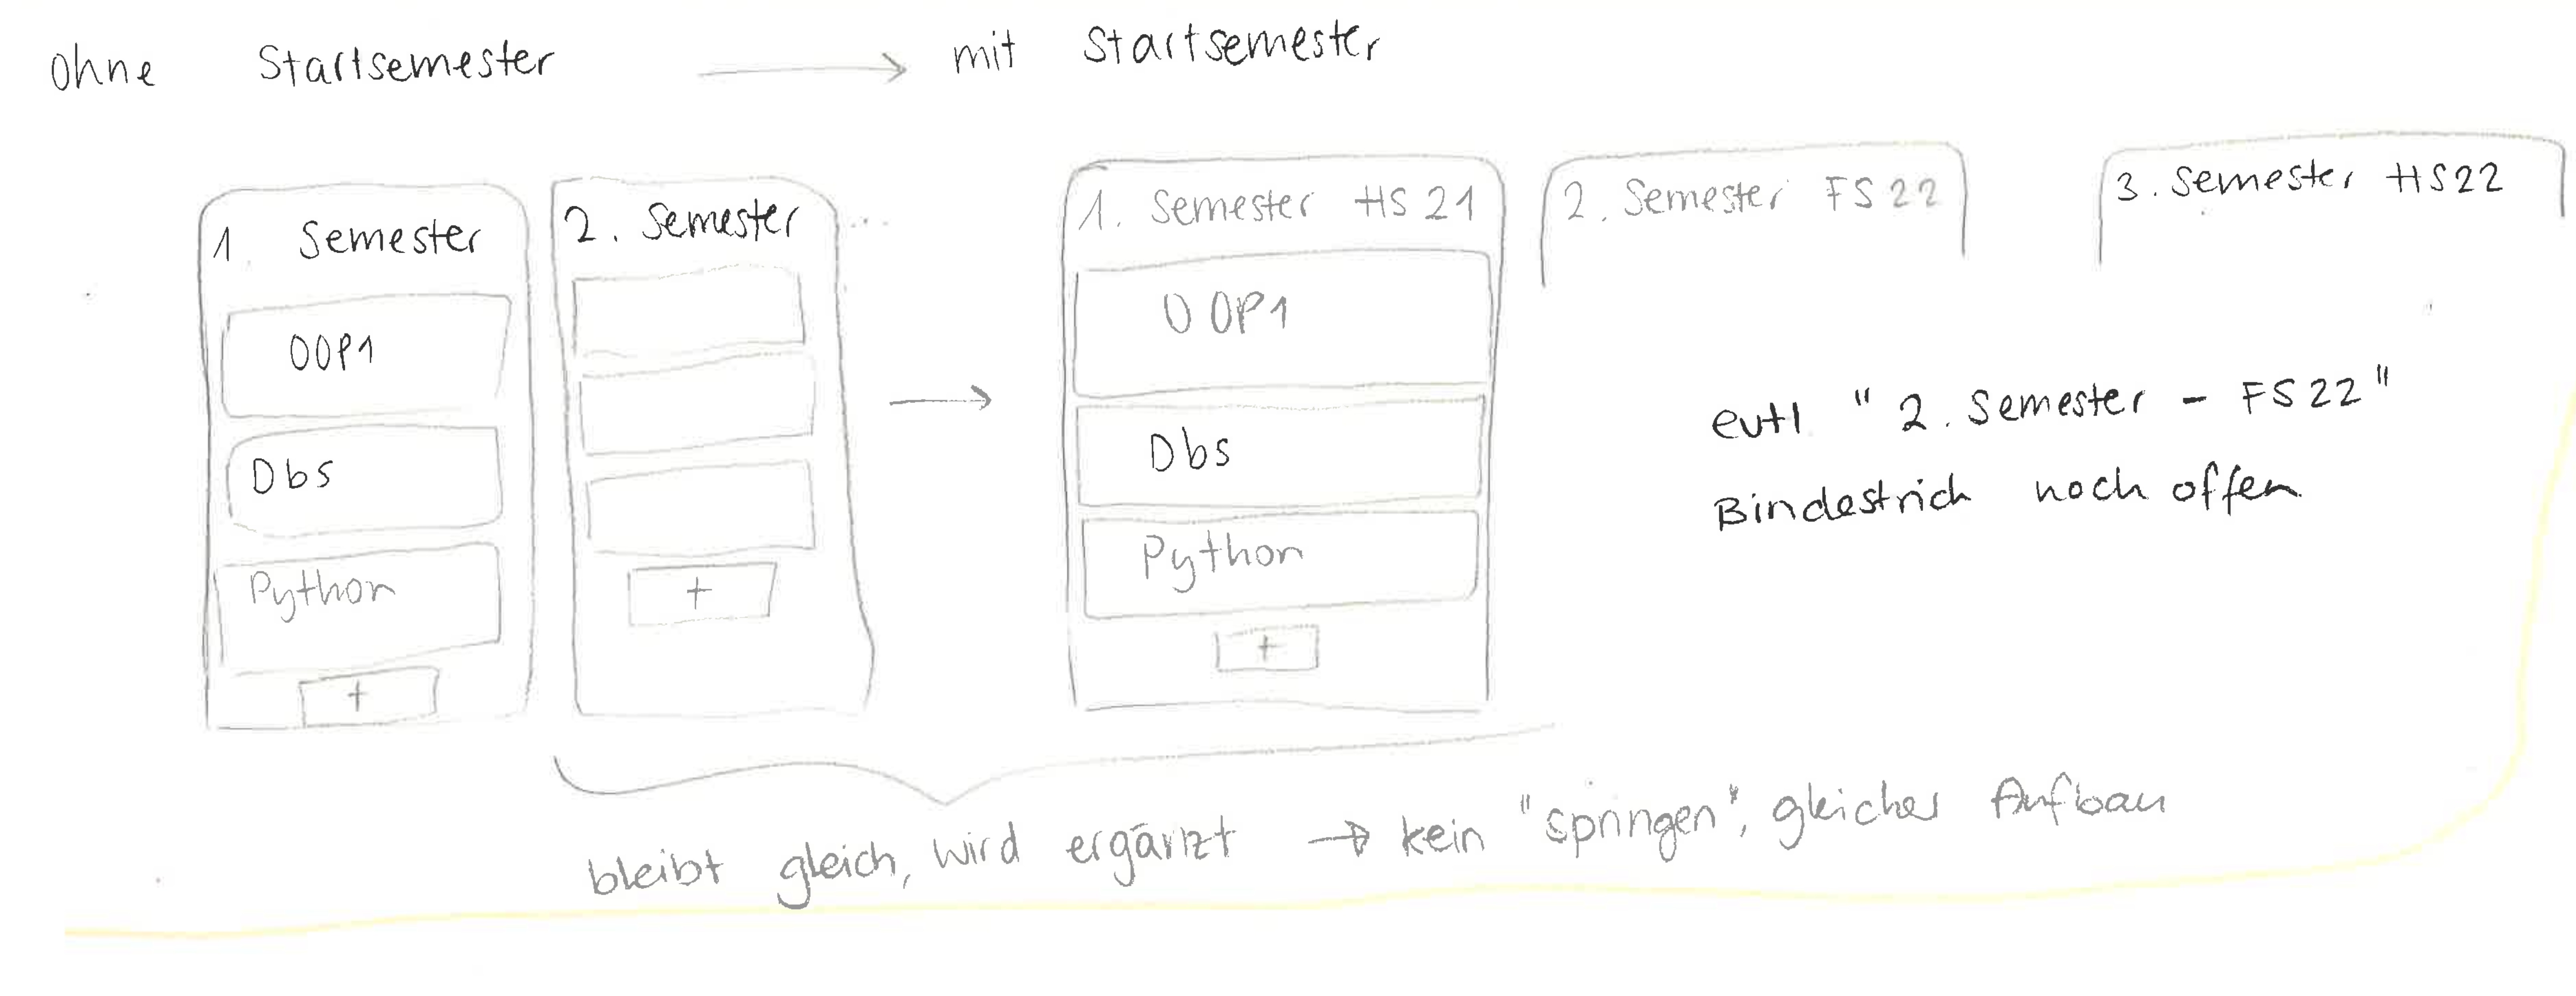 ohne Startsemester → mit Startsemester
1. Semester
OOP1
Dbs
Python
+
2. Semester ...
+
→
1. Semester HS 21
OOP1
Dbs
Python
+
2. Semester FS 22
3. Semester HS22
evtl "2. Semester - FS22"
Bindestrich noch offen
bleibt gleich, wird ergänzt → kein "springen", gleicher Aufbau